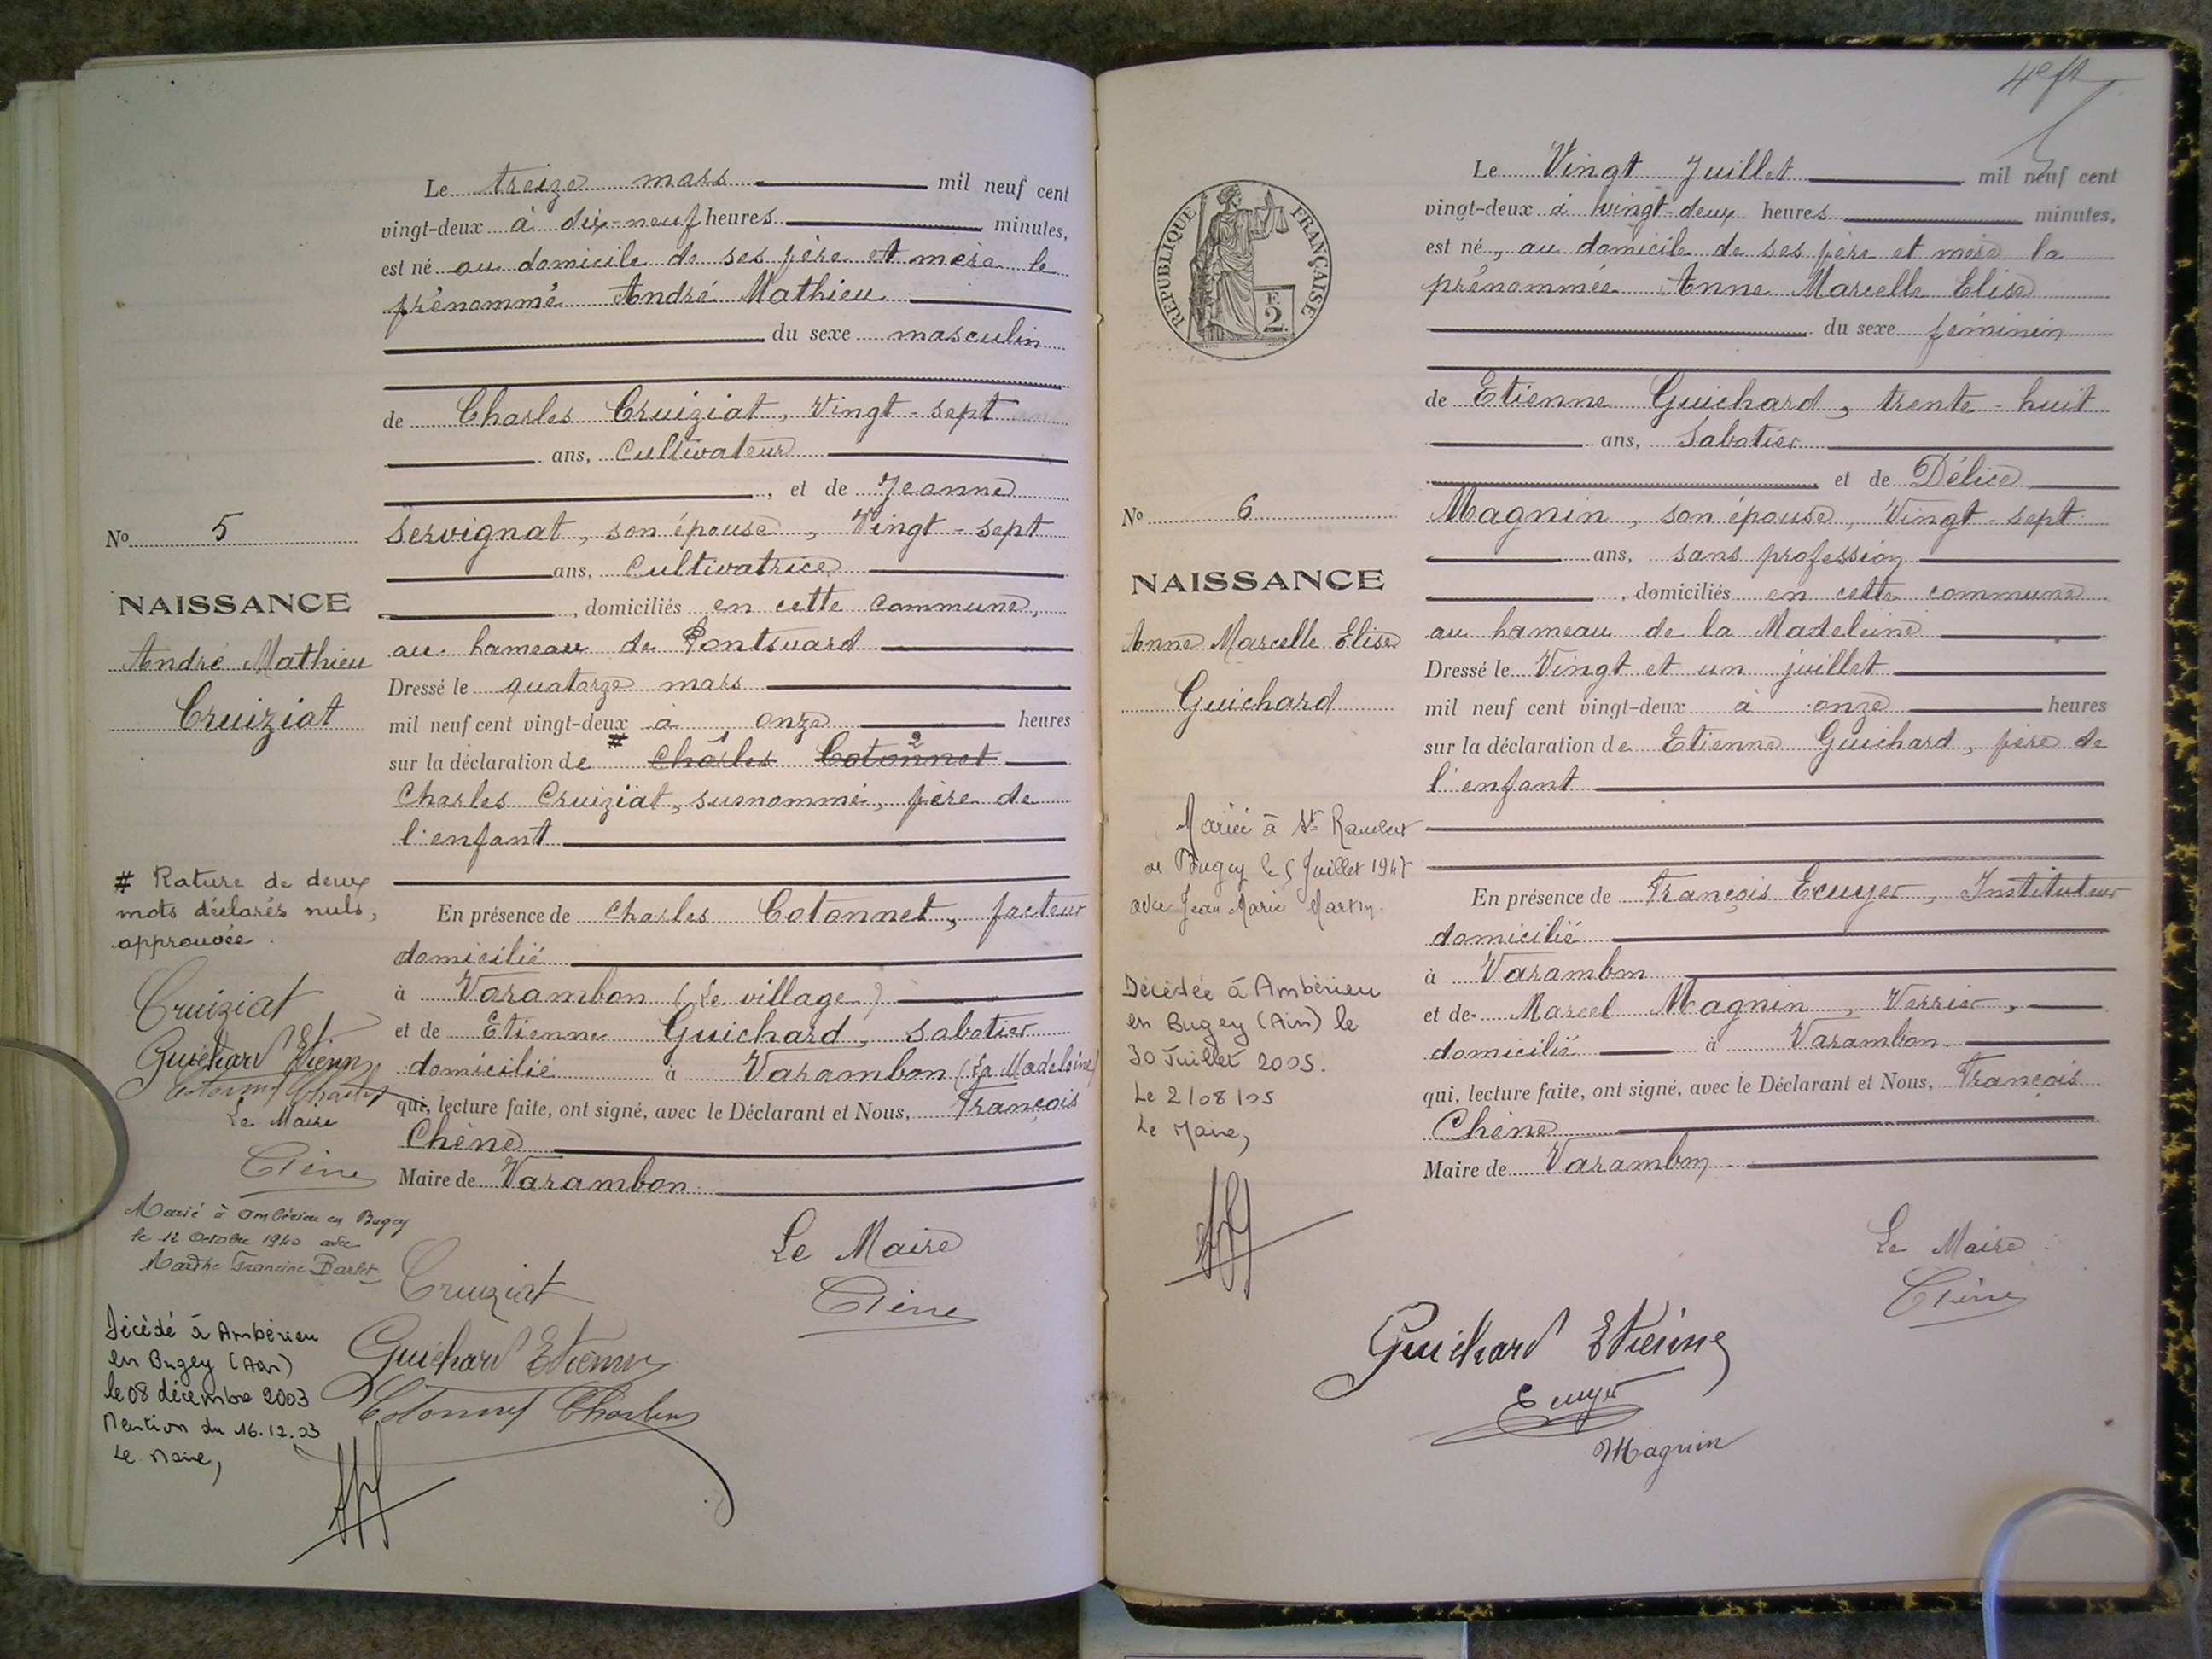 Le treize mars mil neuf cent
vingt-deux à dix-neuf heures minutes,
est né au domicile de ses père et mère le
prénommé André Mathieu
du sexe masculin
de Charles Cruiziat, Vingt-sept
ans, Cultivateur
, et de Jeanne
Servignat, son épouse, Vingt-sept
ans, Cultivatrice
, domiciliés en cette commune,
au hameau de Pontsuard
Dressé le quatorze mars
mil neuf cent vingt-deux à onze heures
sur la déclaration de # Charles Cotonnet
Charles Cruiziat, susnommé, père de
l'enfant
En présence de Charles Cotonnet, facteur
domicilié
à Varambon (Le village)
et de Etienne Guichard, sabotier
domicilié à Varambon (La Madeleine)
qui, lecture faite, ont signé, avec le Déclarant et Nous, François
Chêne
Maire de Varambon
Le Maire
Chêne
Cruiziat
Guichard Etienne
Cotonnet Charles
No 5
NAISSANCE
André Mathieu
Cruiziat
# Rature de deux
mots déclarés nuls,
approuvée.
Cruiziat
Guichard Etienne
Cotonnet Charles
Le Maire
Chêne
Marié à Ambérieu en Bugey
le 12 Octobre 1940 avec
Marthe Francine Barlet
Décédé à Ambérieu
en Bugey (Ain)
le 08 décembre 2003
Mention du 16.12.03
Le Maire,
4e ft
RÉPUBLIQUE FRANÇAISE
F.
2
Le Vingt Juillet mil neuf cent
vingt-deux à vingt-deux heures minutes,
est né, au domicile de ses père et mère la
prénommée Anne Marcelle Elise
du sexe féminin
de Etienne Guichard, trente-huit
ans, Sabotier
et de Délice
Magnin, son épouse, Vingt-sept
ans, sans profession
, domiciliés en cette commune
au hameau de la Madeleine
Dressé le Vingt et un juillet
mil neuf cent vingt-deux à onze heures
sur la déclaration de Etienne Guichard, père de
l'enfant
En présence de François Ecuyer, Instituteur
domicilié
à Varambon
et de Marcel Magnin, Verrier,
domicilié à Varambon
qui, lecture faite, ont signé, avec le Déclarant et Nous, François
Chêne
Maire de Varambon
Le Maire
Chêne
Guichard Etienne
Ecuyer
Magnin
No 6
NAISSANCE
Anne Marcelle Elise
Guichard
Mariée à St Rambert
en Bugey le 5 Juillet 1947
avec Jean Marie
Décédée à Ambérieu
en Bugey (Ain) le
30 Juillet 2005.
Le 2/08/05
Le Maire,